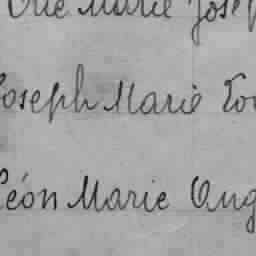 Marie Josep
Joseph Marie
Léon Marie Aug